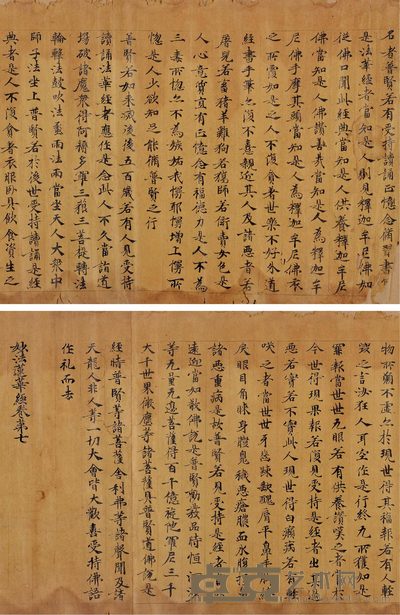 名者普賢若有受持讀誦正憶念脩習書
是法華經者當知是人則見釋迦牟尼佛如
從佛口聞此經典當知是人供養釋迦牟尼
佛當知是人佛讚善哉當知是人為釋迦牟
尼佛手摩其頭當知是人為釋迦牟尼佛衣
之所覆如是之人不復貪著世樂不好外道
經書手筆亦不喜親近其人及諸惡者若
屠兒若畜猪羊雞狗若獵師若衒賣女色是
人心意質直有正憶念有福德力是人不為
三毒所惱亦不為嫉妬我慢邪慢增上慢所
惱是人少欲知足能脩普賢之行
普賢若如來滅後後五百歲若有人見受持
讀誦法華經者應作是念此人不久當詣道
場破諸魔衆得阿耨多羅三藐三菩提轉法
輪擊法鼓吹法螺雨法雨當坐天人大衆中
師子法座上普賢若於後世受持讀誦是經
典者是人不復貪著衣服卧具飲食資生之
物所願不虛亦於現世得其福報若有人輕
毀之言汝狂人耳空作是行終无所獲如是
罪報當世世无眼若有供養讚嘆之者當於
今世得現果報若復見受持是經者出其過
惡若實若不實此人現世得白癩病若輕
咲之者當世世牙齒踈缺醜脣平鼻手脚繚
戾眼目角睞身體臭穢惡瘡膿血水腹短氣
諸惡重病是故普賢若見受持是經者當起
遠迎當如敬佛說是普賢勸發品時恒河沙
等无量无邊菩薩得百千億旋陀羅尼三千
大千世界微塵等諸菩薩具普賢道佛說是
經時普賢等諸菩薩舍利弗等諸聲聞及諸
天龍人非人等一切大會皆大歡喜受持佛語
作礼而去
妙法蓮華經卷第七